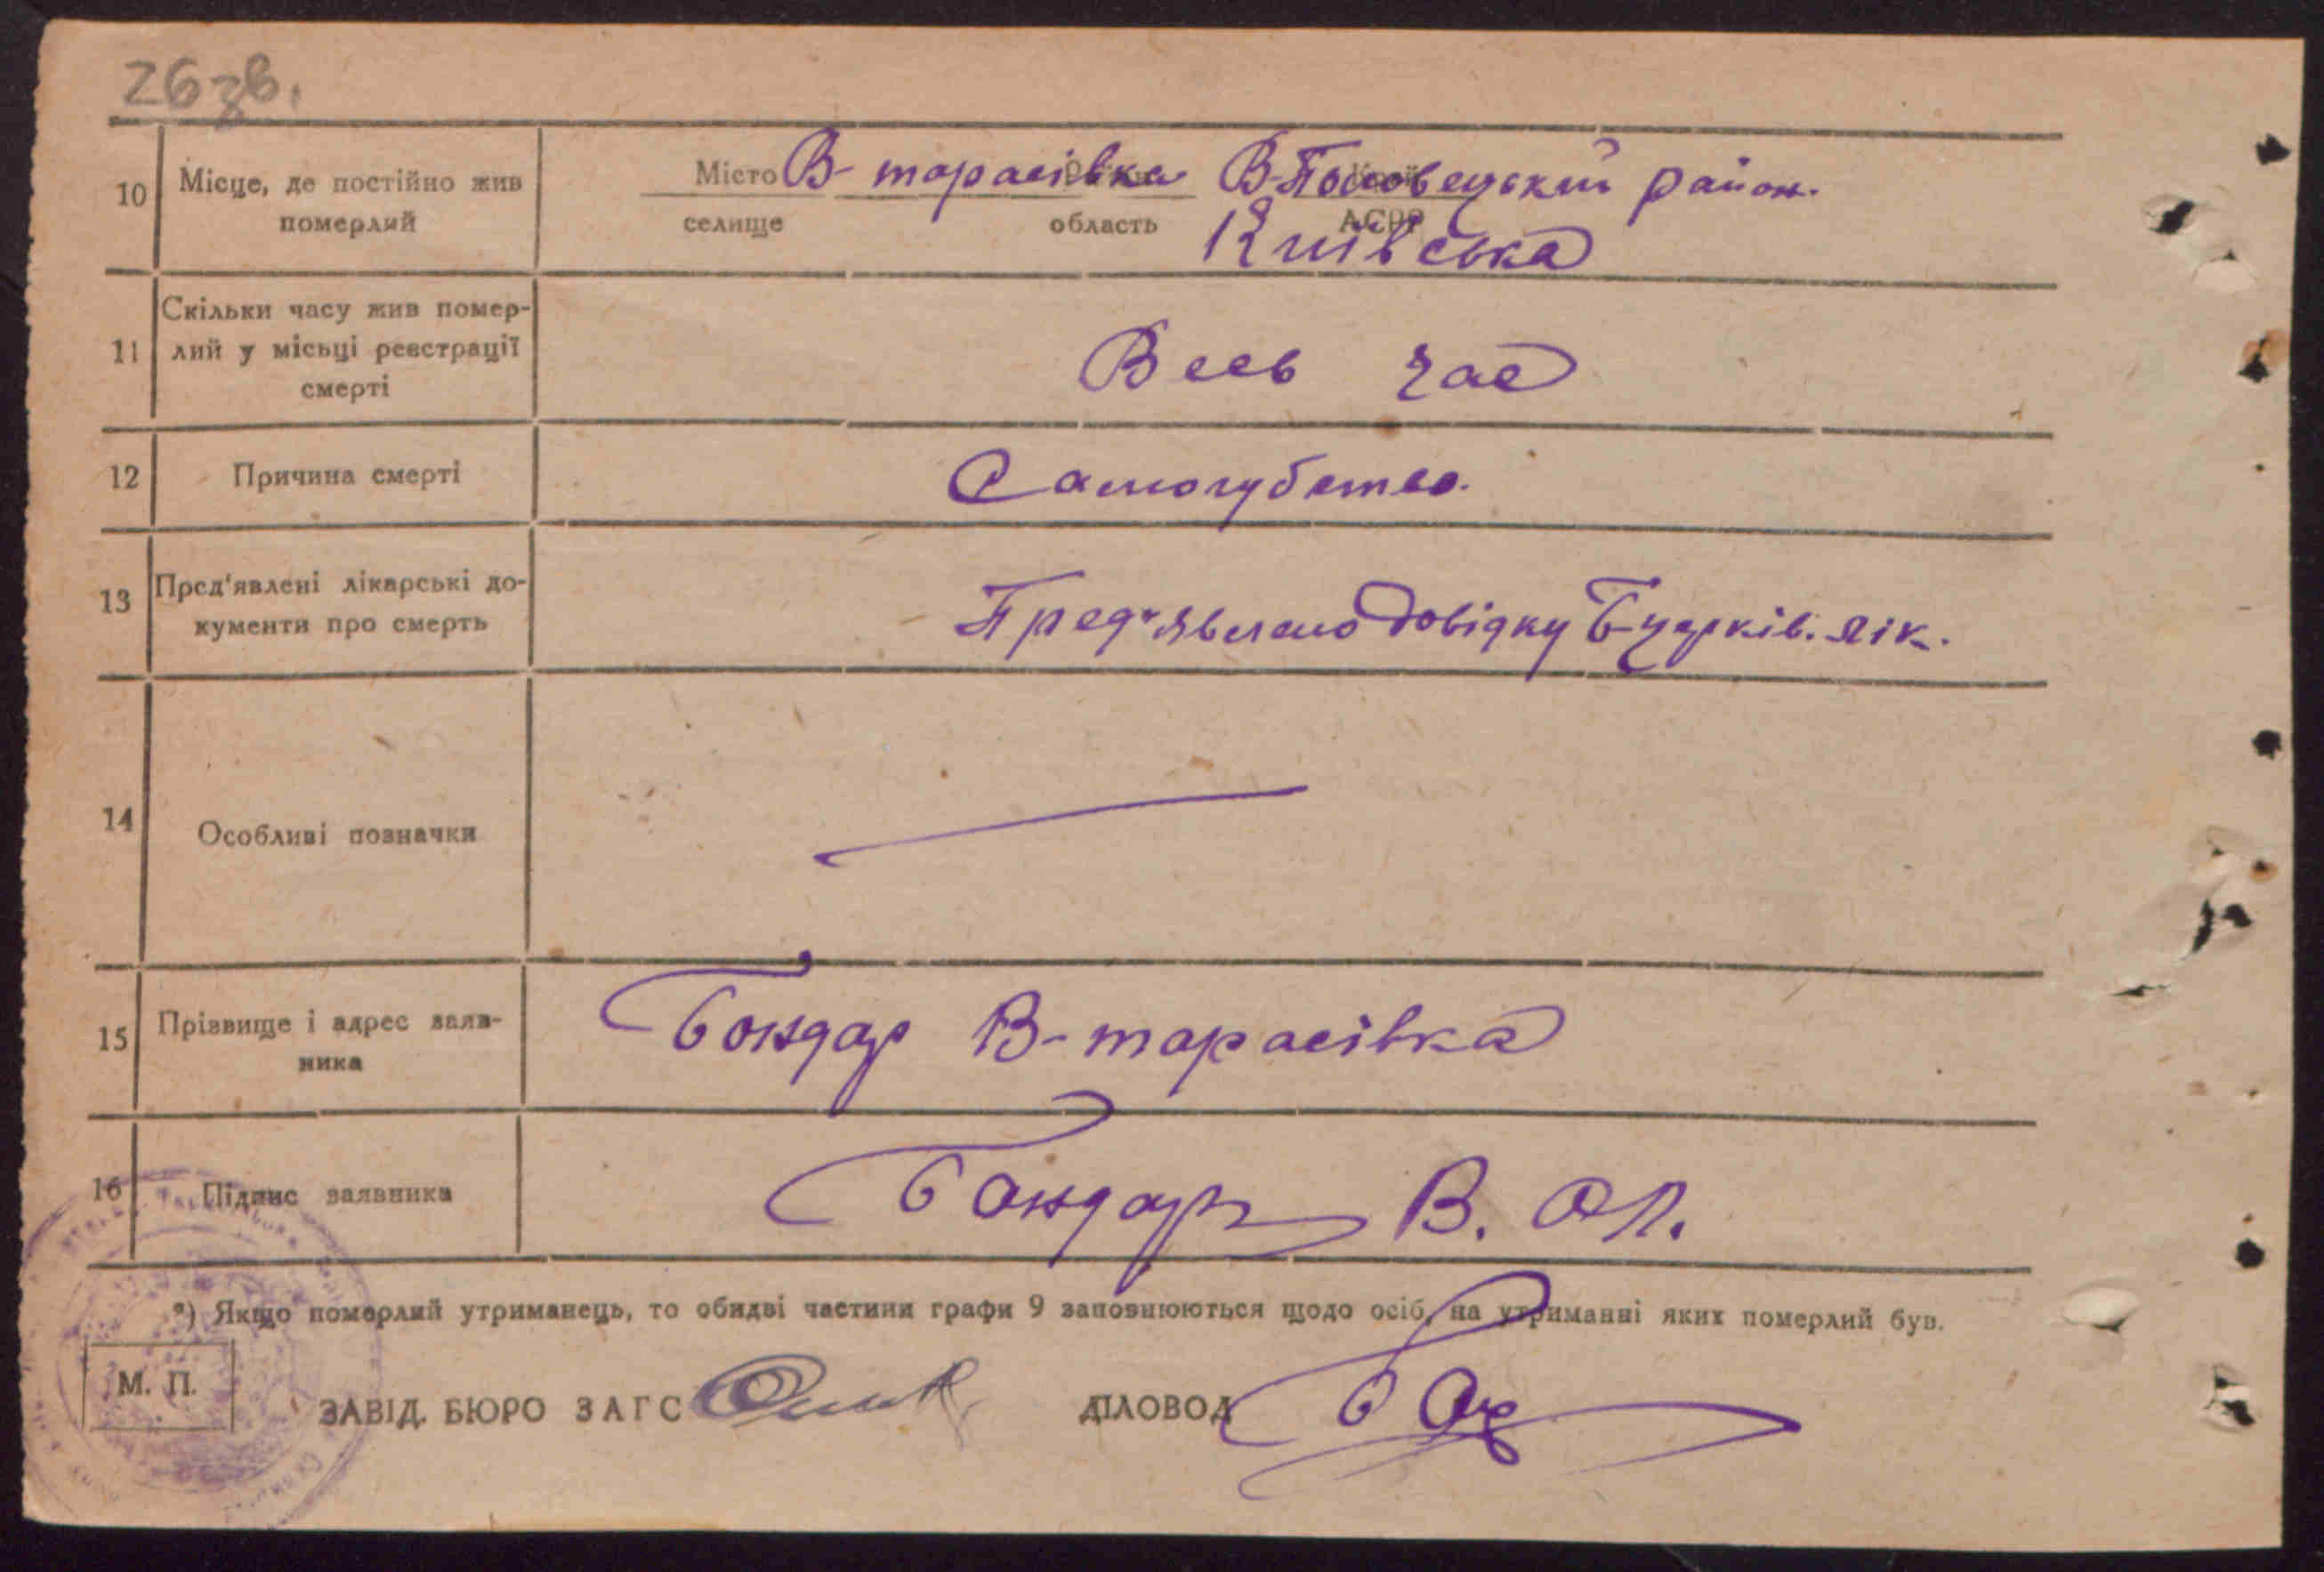 26 зв.
10 Місце, де постійно жив померлий
Місто В-тарасівка В-Половецький район.
селище область АСРР Київська
11 Скільки часу жив помер-
лий у місьці реєстрації
смерті
Весь час
12 Причина смерті Самогубство.
13 Пред'явлені лікарські до-
кументи про смерть
Пред'явлено довідку лік.
14 Особливі позначки
15 Прізвище і адрес заяв-
ника
Бондар В-тарасівка
16 Підпис заявника Бондарь В. Ол.
*) Якщо померлий утриманець, то обидві частини графи 9 заповнюються щодо осіб, на утриманні яких померлий був.
М. П.
ЗАВІД. БЮРО ЗАГС ДІЛОВОД